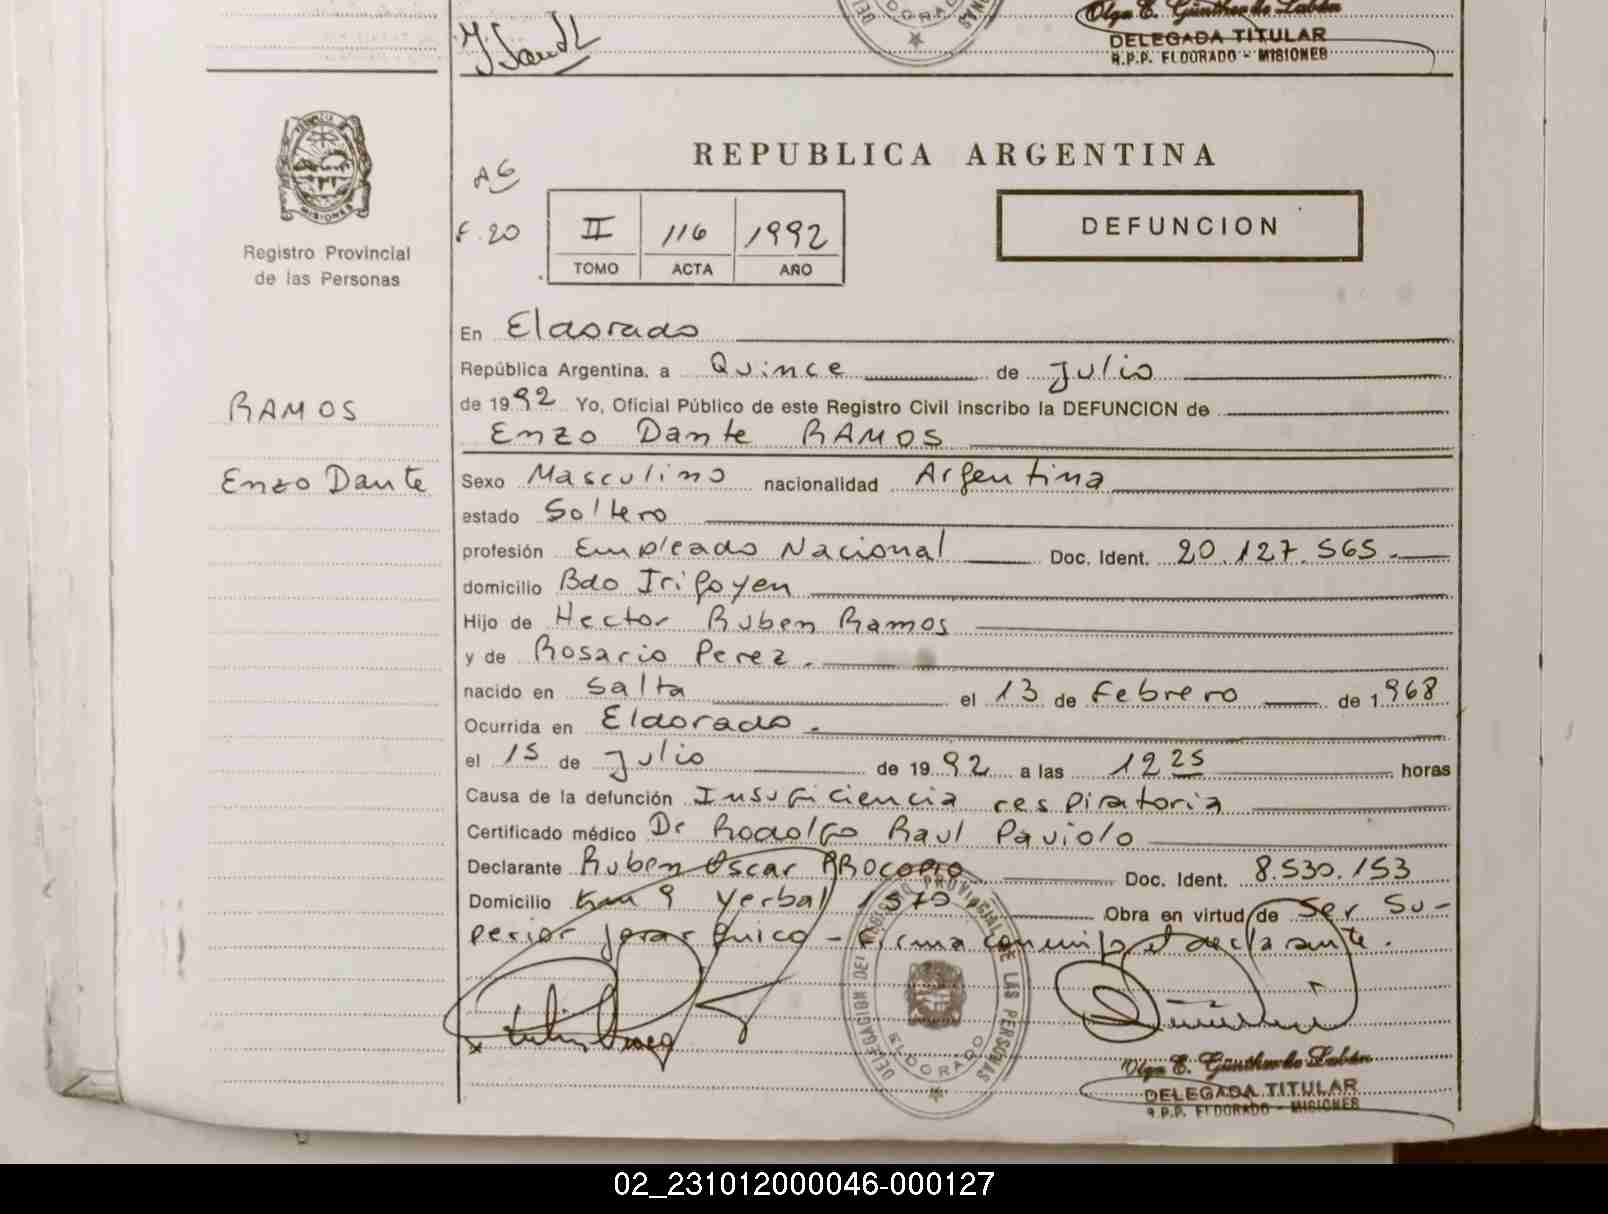 Olga E. Günther de Labán
DELEGADA TITULAR
R.P.P. ELDORADO - MISIONES
MISIONES
Registro Provincial
de las Personas
RAMOS
Enzo Dante
REPUBLICA ARGENTINA
DEFUNCION
A6
F. 20
II 116 1992
TOMO ACTA AÑO
En Eldorado
República Argentina, a Quince de Julio
de 1992 Yo, Oficial Público de este Registro Civil inscribo la DEFUNCION de
Enzo Dante RAMOS
Sexo Masculino nacionalidad Argentina
estado Soltero
profesión Empleado Nacional Doc. Ident. 20.127.565.
domicilio Bdo Irigoyen
Hijo de Hector Ruben Ramos
y de Rosario Perez.
nacido en Salta el 13 de Febrero de 1968
Ocurrida en Eldorado.
el 15 de Julio de 1992 a las 12 25 horas
Causa de la defunción Insuficiencia respiratoria
Certificado médico Dr Rodolfo Raul Paviolo
Declarante Ruben Oscar PROCOPIO Doc. Ident. 8.530.153
Domicilio Km 9 Yerbal 1575 Obra en virtud de Ser Su-
perior jerarquico - Firma conmigo el declarante.
DELEGACION DEL REGISTRO PROVINCIAL DE LAS PERSONAS
ELDORADO
Olga E. Günther de Labán
DELEGADA TITULAR
R.P.P. ELDORADO - MISIONES
02_231012000046-000127